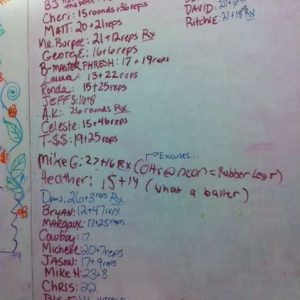 BJ
Cheri: 15 rounds + 36 reps
MATT: 20 + 21 reps
Mr. Burpee: 21 + 12 reps Rx
GEORGE: 16 + 6 reps
B-MASTER PHRESH: 17 + 19 reps
Laura: 13 + 22 reps
Ronda: 15 + 25 reps
JEFF S: 14 + 8
A.K.: 26 rounds Rx
Celeste: 15 + 46 reps
T-$$: 19 + 25 reps
DAVID:
Ritchie: 21 + 18 Rx
Excuses...
Mike G: 27 + 16 Rx (= Rubber Legs)
Heather: 15 + 14 (what a baller)
Dan: 26 + 3 reps Rx
Bryan: 12 + 47 reps
MARGAUX: 17 + 25 reps
Cowboy = 17
Michelle: 20 + 7 reps
JASON: 17 + 9 reps
MIKE H: 23 + 8
CHRIS: 22